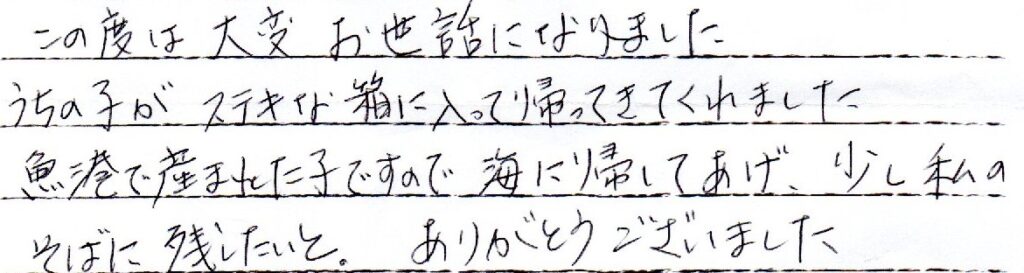 この度は大変お世話になりました
うちの子がステキな箱に入って帰ってきてくれました
魚港で産まれた子ですので海に帰してあげ、少し私の
そばに残したいと。ありがとうございました